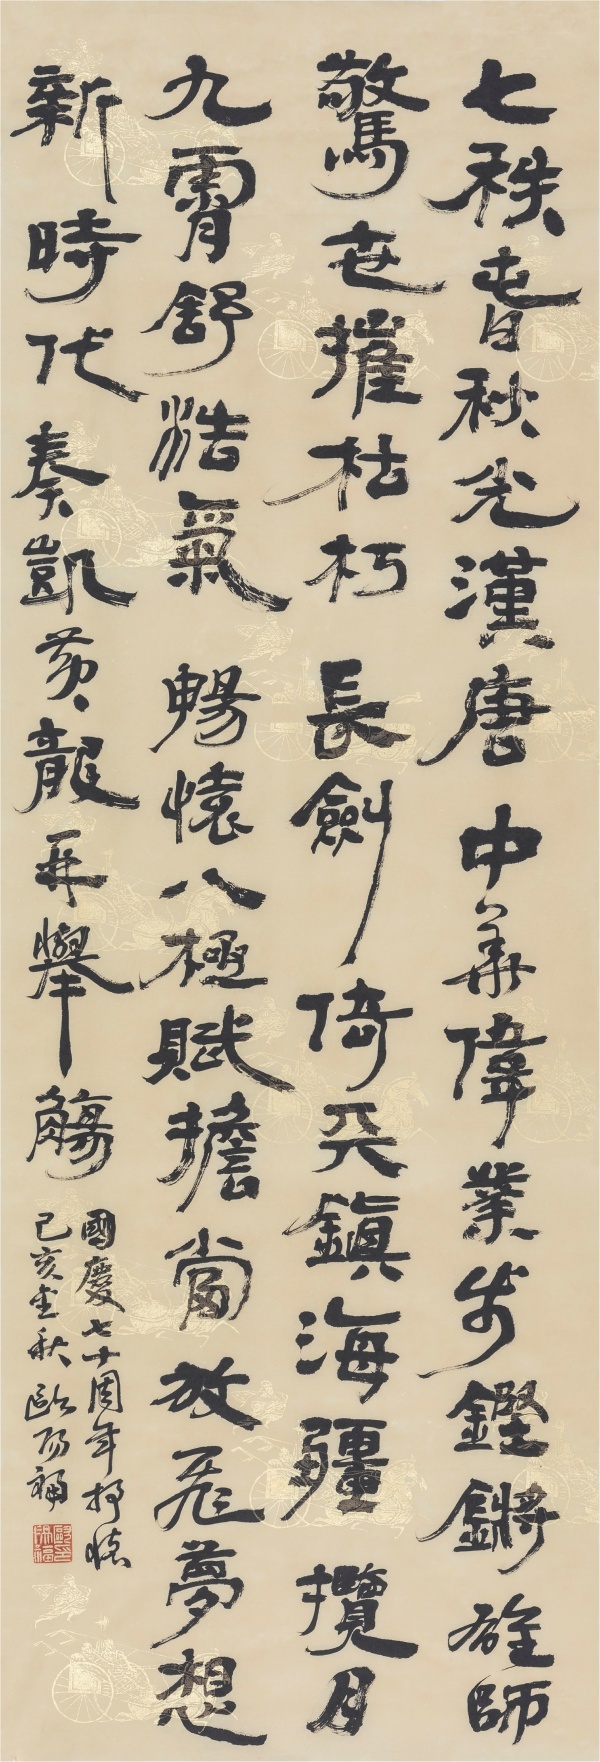 七秩春秋光漢唐中華偉業步鏗鏘雄師
驚世摧枯朽長劍倚天鎮海疆攬月
九霄舒浩氣暢懷八極賦擔當放飛夢想
新時代奏凱黃龍再舉觴
國慶七十周年抒懷
己亥金秋歐陽福